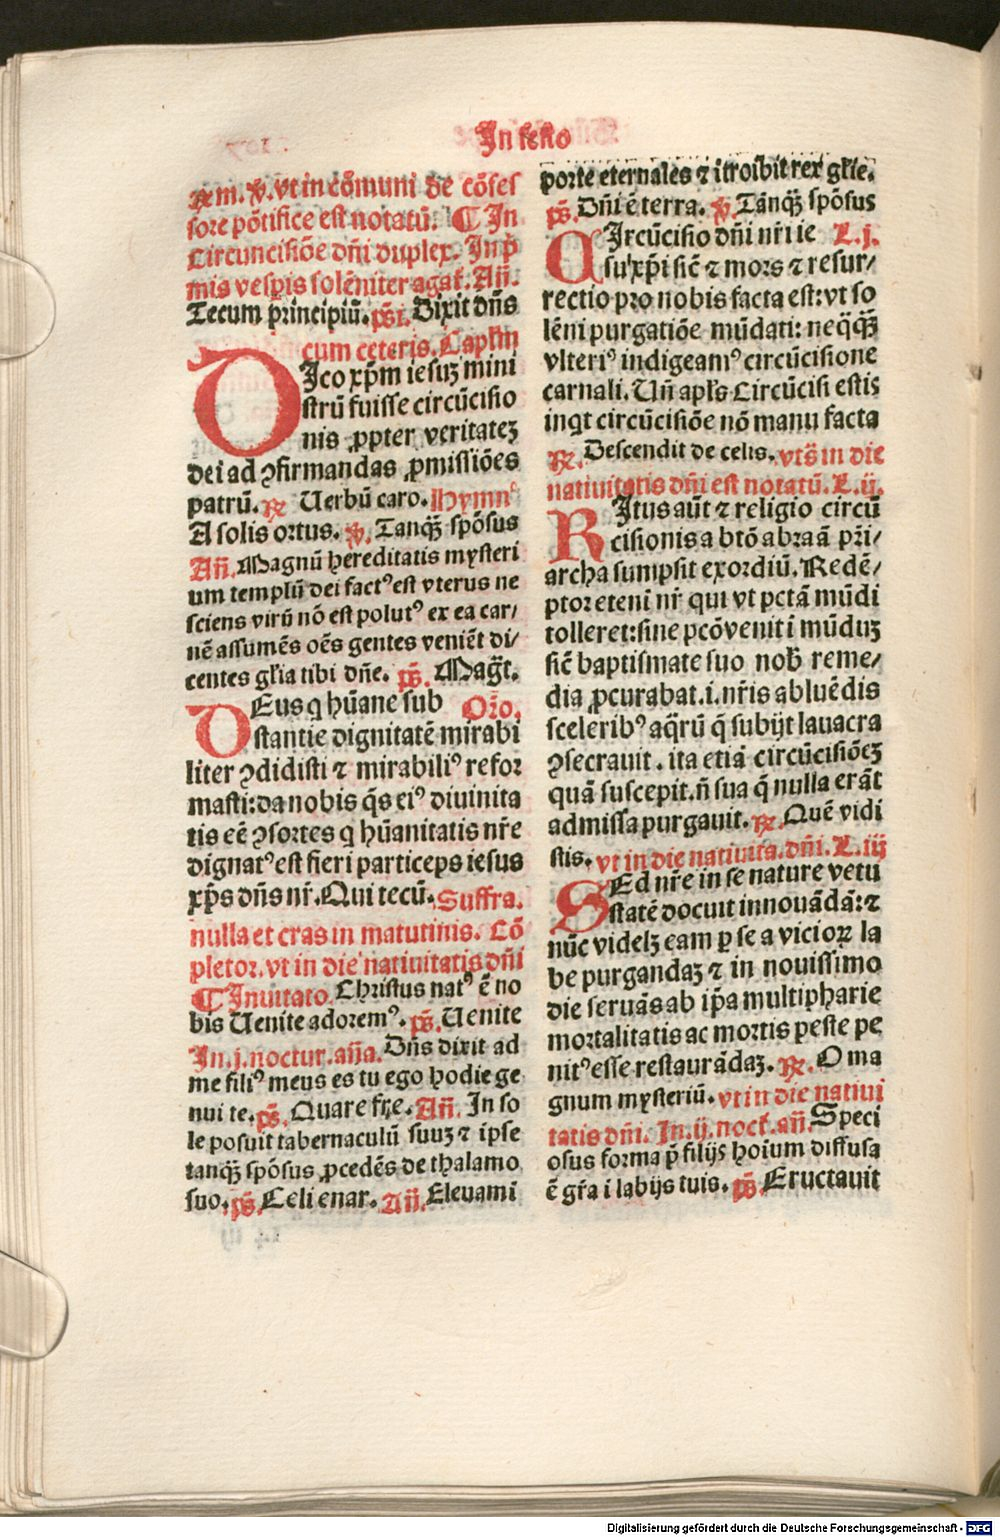 In festo
℞ m. ℣. vt in cōmuni de cōfes
sore pōtifice est notatū. ¶ In
Circuncisiōe dn̄i duplex. In p̄
mis vesp̄is solēniter agat̄. An̄.
Tecum principiū. ps̄. Dixit dn̄s
cum ceteris. Capl'm
DIco xp̄m iesuꝫ mini
strū fuisse circūcisio
nis ꝓpter veritateꝫ
dei ad ꝯfirmandas ꝓmissiōes
patrū. ℞ Uerbū caro. Hymnꝰ
A solis ortus. ℣. Tanqꝫ̄ spōsus
An̄. Magnū hereditatis mysteri
um templū dei factꝰ est vterus ne
sciens virū nō est polutꝰ ex ea car⸗
nē assumēs oēs gentes veniēt di⸗
centes gl'ia tibi dn̄e. ps̄. Mag̃t.
DEus q hūane sub Or̄o.
stantie dignitatē mirabi
liter ꝯdidisti ⁊ mirabiliꝰ refor
masti: da nobis q̄s eiꝰ diuinita
tis eē ꝯsortes q hūanitatis nr̄e
dignatꝰ est fieri particeps iesus
xp̄s dn̄s nr̄. Qui tecū. Suffra.
nulla et cras in matutinis. Cō
pletor. vt in die natiuitatis dn̄i
¶ Inuitato. Christus natꝰ ē no
bis Uenite adoremꝰ. ps̄. Uenite
In .j. noctur. an̄a. Dn̄s dixit ad
me filiꝰ meus es tu ego hodie ge
nui te. ps̄. Quare fr̄e. An̄. In so
le posuit tabernaculū suuꝫ ⁊ ipse
tanqꝫ̄ spōsus ꝓcedēs de thalamo
suo. ps̄. Celi enar. An̄. Eleuami
porte eternales ⁊ itroibit rex gl'ie.
ps̄. Dn̄i ē terra. ℣. Tānqꝫ̄ spōsus
CIrcūcisio dn̄i nr̄i ie L. j.
su xp̄i sic̄ ⁊ mors ⁊ resur⸗
rectio pro nobis facta est: vt so
lēni purgatiōe mūdati: neq̄qꝫ̄
vlteriꝰ indigeamꝰ circūcisione
carnali. Un̄ apl's Circūcisi estis
inqt circūcisiōe nō manu facta
℞. Descendit de celis. vts̄ in die
natiuitatis dn̄i est notatū. L. ij.
RItus aūt ⁊ religio circū
cisionis a btō abraā pr̄i⸗
archa sumpsit exordiū. Redē⸗
ptor etenī nr̄ qui vt pctā mūdi
tolleret: sine pcō venit i mūduꝫ
sic̄ baptismate suo nob̄ reme⸗
dia ꝓcurabat. i. nr̄is abluēdis
sceleribꝰ aq̄rū q̄ subijt lauacra
ꝯsecrauit. ita etiā circūcisiōeꝫ
quā suscepit. n̄ sua q̄ nulla erāt
admissa purgauit. ℞. Quē vidi
stis. vt in die natiuita. dn̄i. L. iij
SEd nr̄e in se nature vetu
statē docuit innouādā: ⁊
nūc videlꝫ eam ꝑ se a vicioꝝ la
be purgandaꝫ ⁊ in nouissimo
die seruās ab ip̄a multipharie
mortalitatis ac mortis peste pe
nitꝰ esse restaurādaꝫ. ℞. O ma
gnum mysteriū. vt in die natiui
tatis dn̄i. In .ij. noct̄. an̄. Speci
osus forma p̄ filijs hoīum diffusa
ē gr̄a i labijs tuis. ps̄. Eructauit
Digitalisierung gefördert durch die Deutsche Forschungsgemeinschaft - DFG